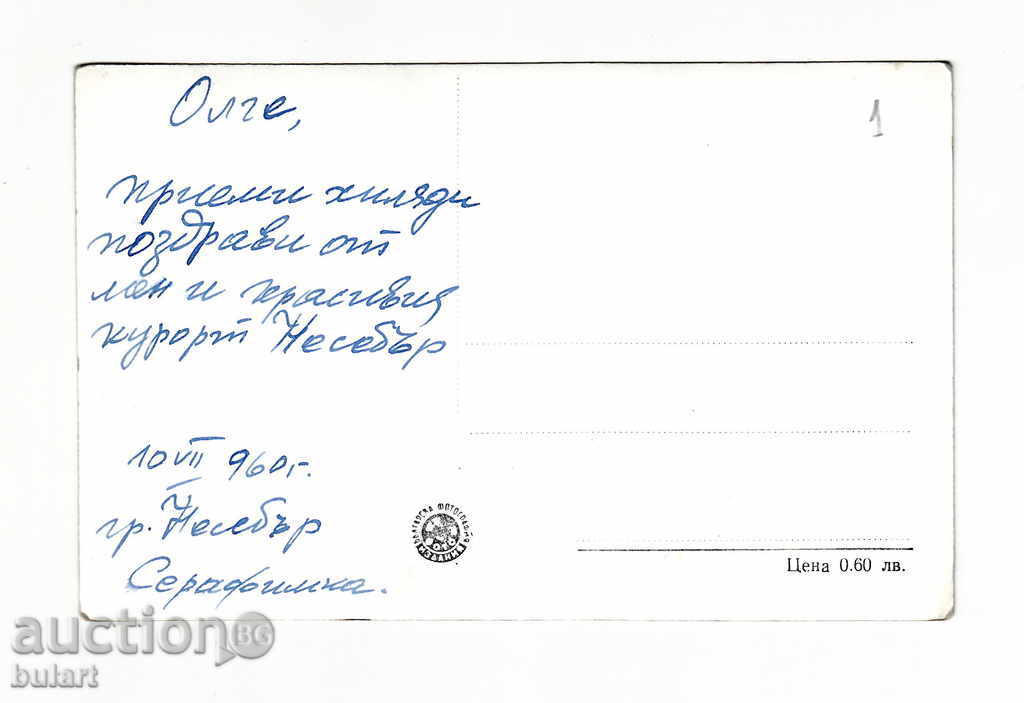 Олге,
приеми хиляди
поздрави от
мен и красивия
курорт Несебър
10 VII 960 г.
гр. Несебър
Серафимка.
1
БЪЛГАРСКА ФОТОГРАФИЯ
ИЗДАНИЕ
Цена 0.60 лв.
auction BG
bulart